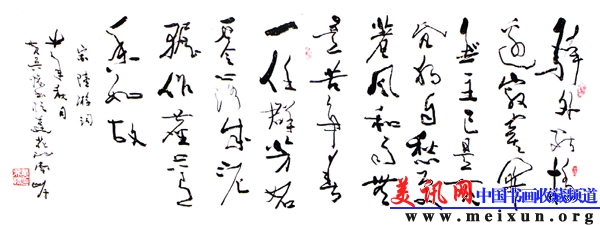 驿外断桥
边寂寞开
无主已是黄
昏独自愁更
著风和雨无
意苦争春
一任群芳妒
零落成泥
碾作尘只有
香如故
宋陆游词
美讯网中国书画收藏频道
www.meixun.org